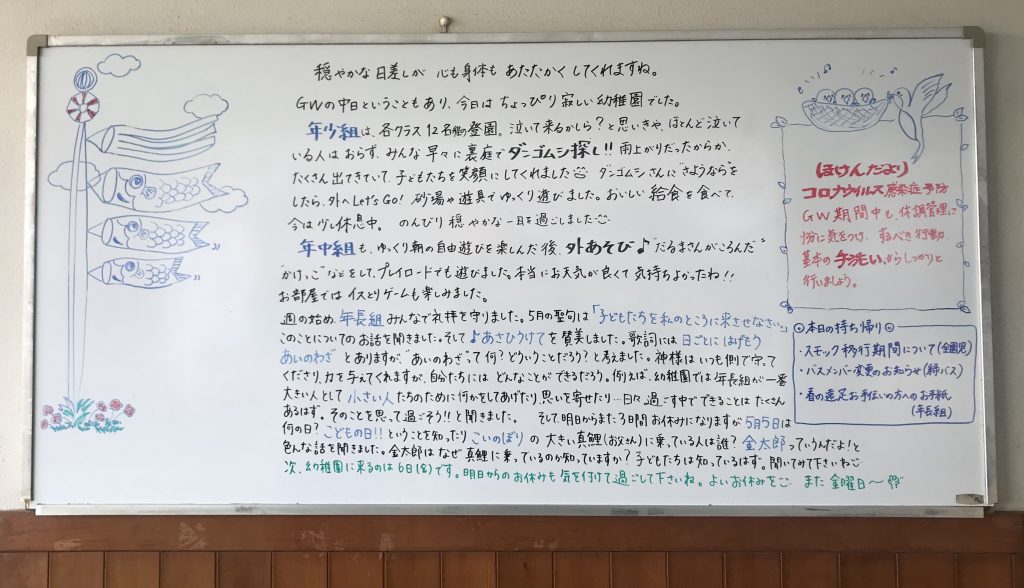 穏やかな日差しが 心も身体も あたたかく してくれますね。
GWの中日ということもあり、今日は ちょっぴり 寂しい幼稚園でした。
年少組は、各クラス12名程の登園。泣いて来るかしら?と思いきや、ほとんど泣いて
いる人は おらず、みんな 早々に 裏庭で ダンゴムシ探し!! 雨上がりだったからか、
たくさん出てきていて、子どもたちを笑顔にしてくれました ダンゴムシさんに“さようなら”を
したら、外へLet's Go! 砂場や遊具でゆっくり遊びました。おいしい 給食を食べて、
今は少し休息中。 のんびり 穏やかな一日を過ごしました
年中組も、ゆっくり朝の自由遊びを楽しんだ後、外あそび♪ “だるまさんがころんだ”
“かけっこ”などをして、プレイロードでも遊びました。本当にお天気が良くて気持ちよかったね!!
お部屋では イスとりゲームも楽しみました。
週の始め、年長組 みんなで礼拝を守りました。5月の聖句は「子どもたちを私のところに来させなさい。」
このことについてのお話を聞きました。そして♪あさひうけてを賛美しました。歌詞には 日ごとに はげもう
あいのわざ とありますが、“あいのわざ”って何?どういうことだろう?と考えました。神様は いつも側で守って
くださり、力を与えてくれますが、自分たちには どんなことができるだろう。例えば、幼稚園では年長組が一番
大きい人として 小さい人たちのために何かをしてあげたり、思いを寄せたり…日々過ごす中でできることは たくさん
あるはず。そのことを思って過ごそう!!と聞きました。 そして、明日からまた3日間お休みになりますが 5月5日は
何の日? こどもの日!! ということを知ったり こいのぼり の 大きい真鯉(お父さん)に乗っている人は誰? 金太郎 っていうんだよ!と
色んな話を聞きました。金太郎は なぜ 真鯉に乗っているのか知っていますか? 子どもたちは知っているはず。聞いてみて下さいね
次、幼稚園に来るのは 6日(金)です。明日からのお休みも 気を付けて過ごして下さいね。よいお休みを また 金曜日〜
(ほけんだより)
コロナウイルス感染症予防
GW期間中も、体調管理に
十分に気をつけ、するべき行動、
基本の手洗い、からしっかりと
行いましょう。
◎本日の持ち帰り◎
・スモック移行期間について(全園児)
・バスメンバー変更のお知らせ(緑バス)
・春の遠足お手伝いの方へのお手紙
(年長組)